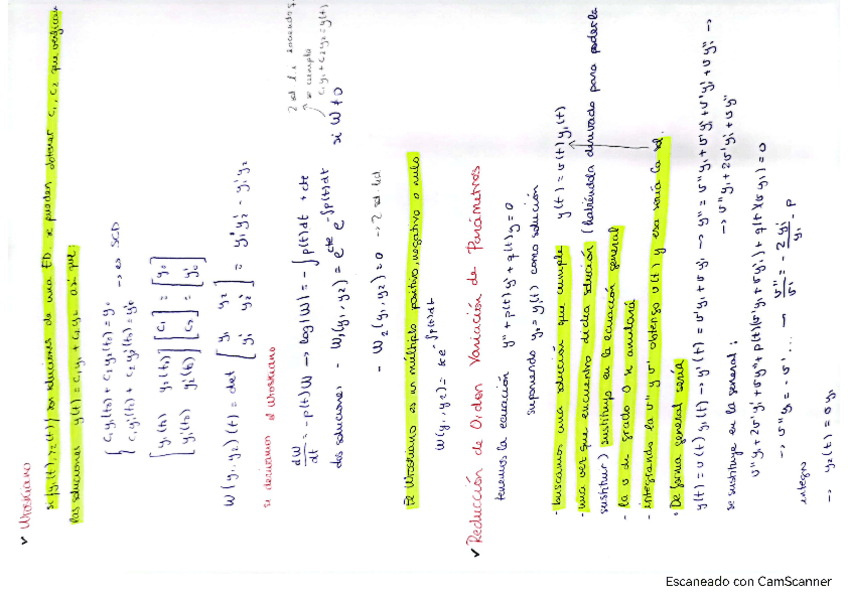 ✓ Wroskiano
si (y₁(t), y₂(t)) son soluciones de una ED. se pueden obtener c₁, c₂ que verifican
las soluciones y(t) = c₁y₁ + c₂y₂ así que:
{ c₁y₁(t₀) + c₂y₂(t₀) = y₀
{ c₁y₁'(t₀) + c₂y₂'(t₀) = y₀' → es SCD
[ y₁(t₀) y₂(t₀) ] [ c₁ ] = [ y₀ ]
[ y₁'(t₀) y₂'(t₀) ] [ c₂ ] = [ y₀' ]
W(y₁, y₂)(t) = det [ y₁ y₂ ]
[ y₁' y₂' ] = y₁y₂' - y₁'y₂
si derivamos el Wroskiano
dW/dt = -p(t)W → log(W) = -∫p(t)dt + cte
dos soluciones: - W₁(y₁, y₂) = e^cte e^-∫p(t)dt si W ≠ 0
2 sol l.i.
se cumple
c₁y₁ + c₂y₂ = y(t)
- W₂(y₁, y₂) = 0 → 2 sol. l.d
El Wroskiano es un múltiplo positivo, negativo o nulo
W(y₁, y₂) = ke^-∫p(t)dt
✓ Reducción de Orden Variación de Parámetros
tenemos la ecuación y'' + p(t)y' + q(t)y = 0
suponiendo y₁ = y₁(t) como solución
- buscamos una solución que cumple y(t) = v(t)y₁(t)
- una vez que encuentro dicha solución (habiéndola derivado para poderla
sustituir) sustituyo en la ecuación general
- la v de grado 0 se anulará
- integrando la v'' y v' obtengo v(t) y esa será la sol.
• De forma general sería
y(t) = v(t)y₁(t) → y'(t) = v'y₁ + vy₁' → y'' = v''y₁ + v'y₁' + v'y₁' + vy₁'' →
→ v''y₁ + 2v'y₁' + vy''
se sustituye en la general:
v''y₁ + 2v'y₁' + vy₁'' + p(t)(v'y₁ + vy₁') + q(t)(vy₁) = 0
→ v''y₁ = -v' ... → v''/v' = -2y₁'/y₁ - p
integro
→ y₂(t) = vy₁
Escaneado con CamScanner